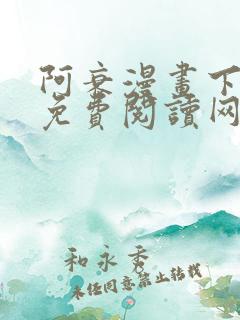 阿衰漫畫下
免費閱讀网
和永秀
未经同意禁止转载